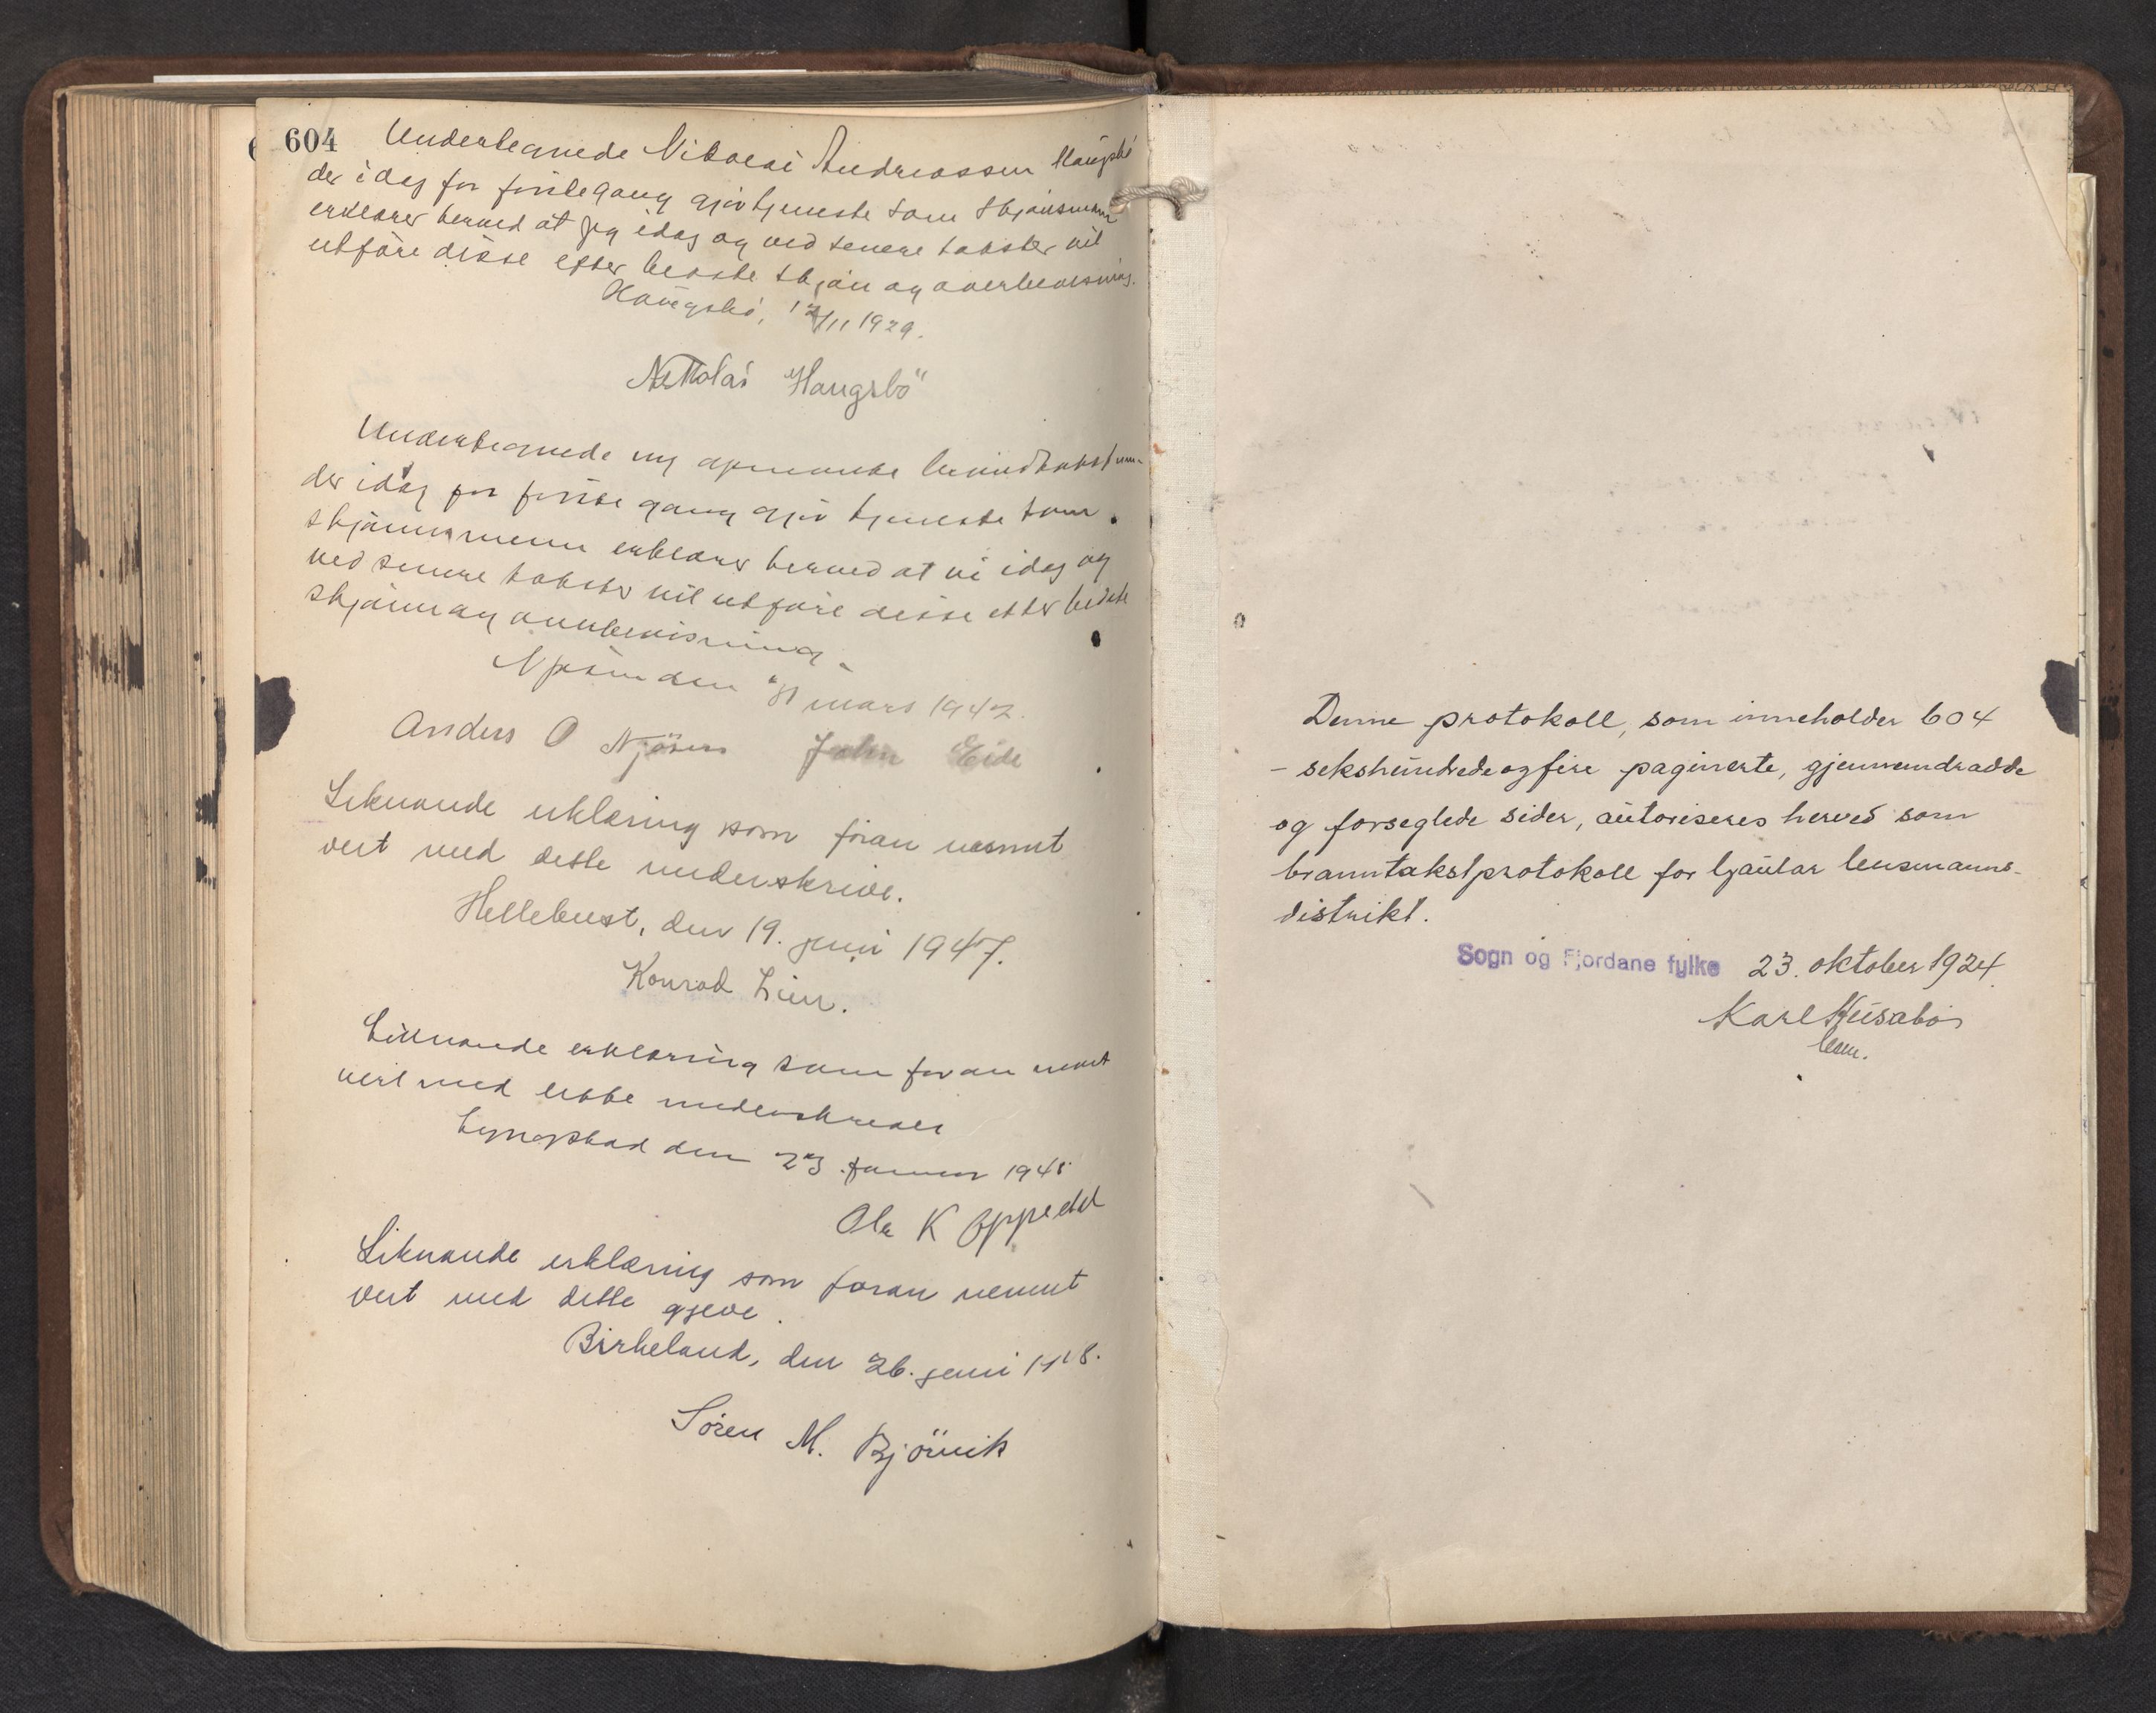 604
Undertegnede Nikolai Andreassen Haugsbö
der idag for förstegang gjör tjeneste som skjönsmann
erklærer herved at jeg idag og ved senere takster vil
utföre disse efter bedste skjön og overbevisning.
Haugsbö, 12/11 1929.
Nikolai Haugsbö
Undertegnede ny opnevnte branntakstmenn
der idag for förste gang gjör tjeneste som
skjönnsmenn erklærer herved at vi idag og
ved senere takster vil utföre disse etter beste
skjönn og overbevisning.
Njösen den mars 1942.
Anders O Njösen John Eide
Liknande erklæring som foran nemnt
vert med dette underskrive.
Hellebust, den 19. juni 1947.
Konrad Lien.
Liknande erklæring som foran nemt
vert med dette underskreve
Lyngstad den 23 januar 1948
Ola K Oppedal
Liknande erklæring som foran nemnt
vert med dette gjeve.
Birkeland, den 26. juni 1948.
Sören M. Björvik
Denne protokoll, som inneholder 604
- sekshundredeogfire paginerte, gjennemdradde
og forseglede sider, autoriseres herved som
branntakstprotokoll for Gaular lensmanns-
distrikt.
Sogn og Fjordane fylke 23. oktober 1924.
Karl Husabö